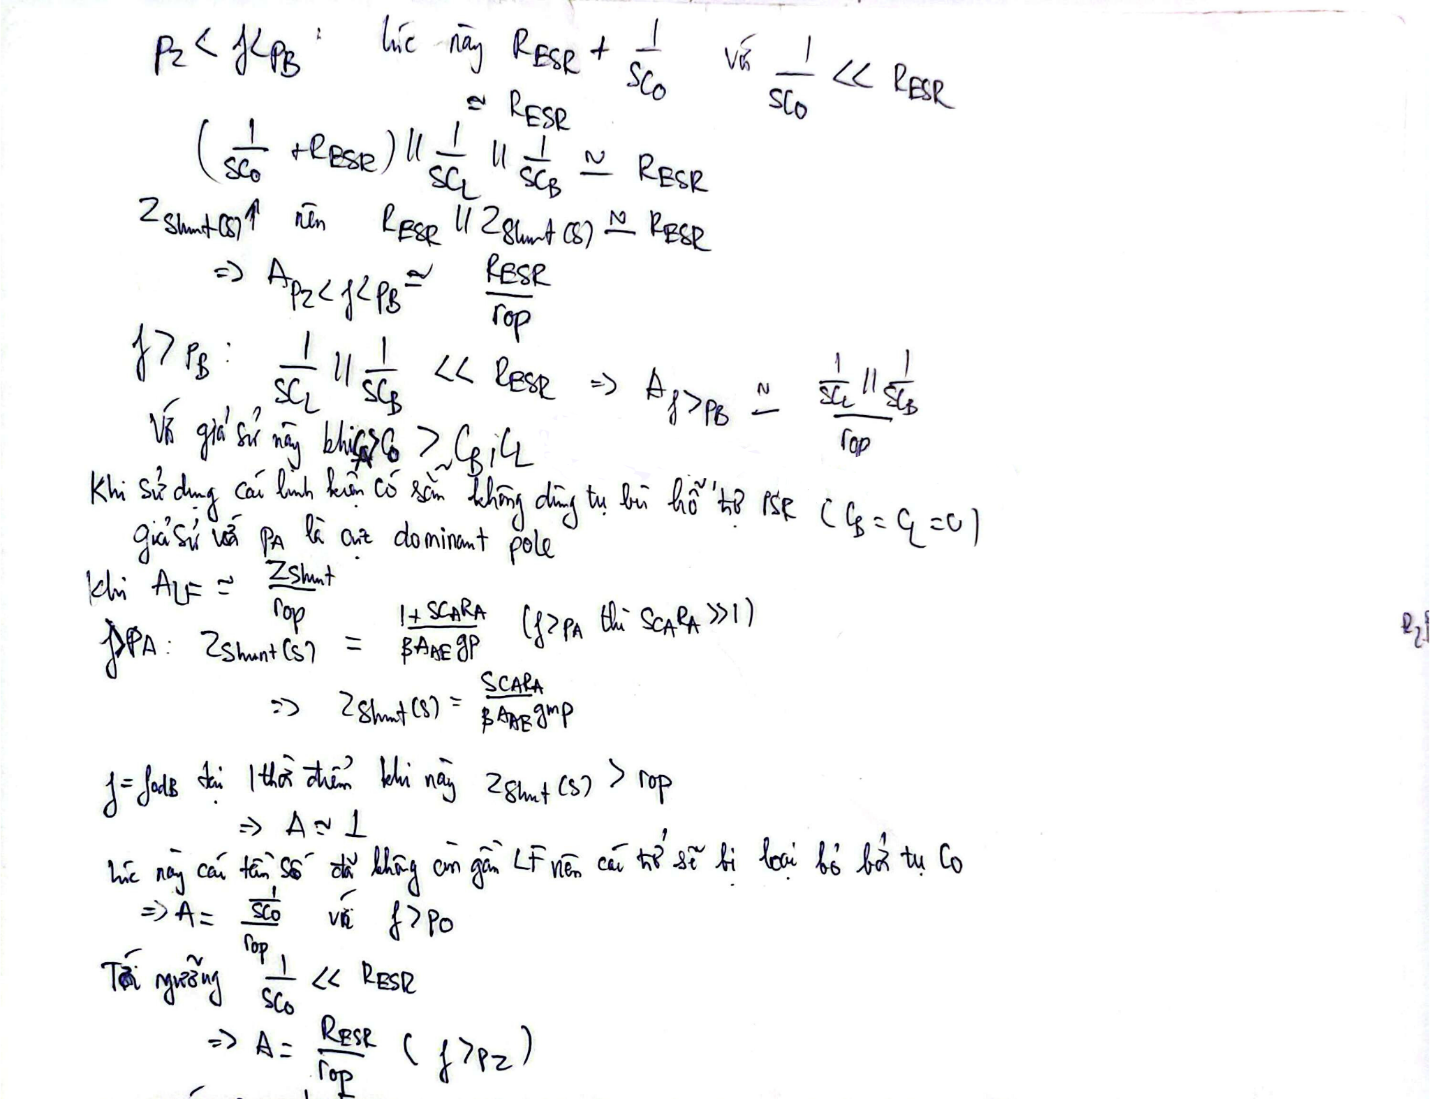 p_z < f < p_B : lúc này R_ESR + 1/sC_O với 1/sC_O << R_ESR
≃ R_ESR
(1/sC_O + R_ESR) || 1/sC_L || 1/sC_B ≃ R_ESR
Z_shunt(s) ↑ nên R_ESR || Z_shunt(s) ≃ R_ESR
=> A_{p_z < f < p_B} ≃ R_ESR/r_op
f > p_B : 1/sC_L || 1/sC_B << R_ESR => A_{f > p_B} ≃ (1/sC_L || 1/sC_B)/r_op
Với giả sử này khi C_O > C_B, C_L
Khi sử dụng cái linh kiện có sẵn không dùng tụ bù hỗ trợ PSR (C_B = C_L = 0)
giả sử với p_A là cực dominant pole
khi A_LF ≃ Z_shunt/r_op
f > p_A : Z_shunt(s) = (1 + sC_A R_A)/(β A_AE gp) (f > p_A thì sC_A R_A >> 1)
=> Z_shunt(s) = sC_A R_A/(β A_AE gmp)
f = f_0dB tại 1 thời điểm khi này Z_shunt(s) > r_op
=> A ≃ 1
lúc này cái tần số đã không còn gần LF nên cái trở sẽ bị loại bỏ bởi tụ C_O
=> A = (1/sC_O)/r_op với f > p_O
Tới ngưỡng 1/sC_O << R_ESR
=> A = R_ESR/r_op (f > p_z)